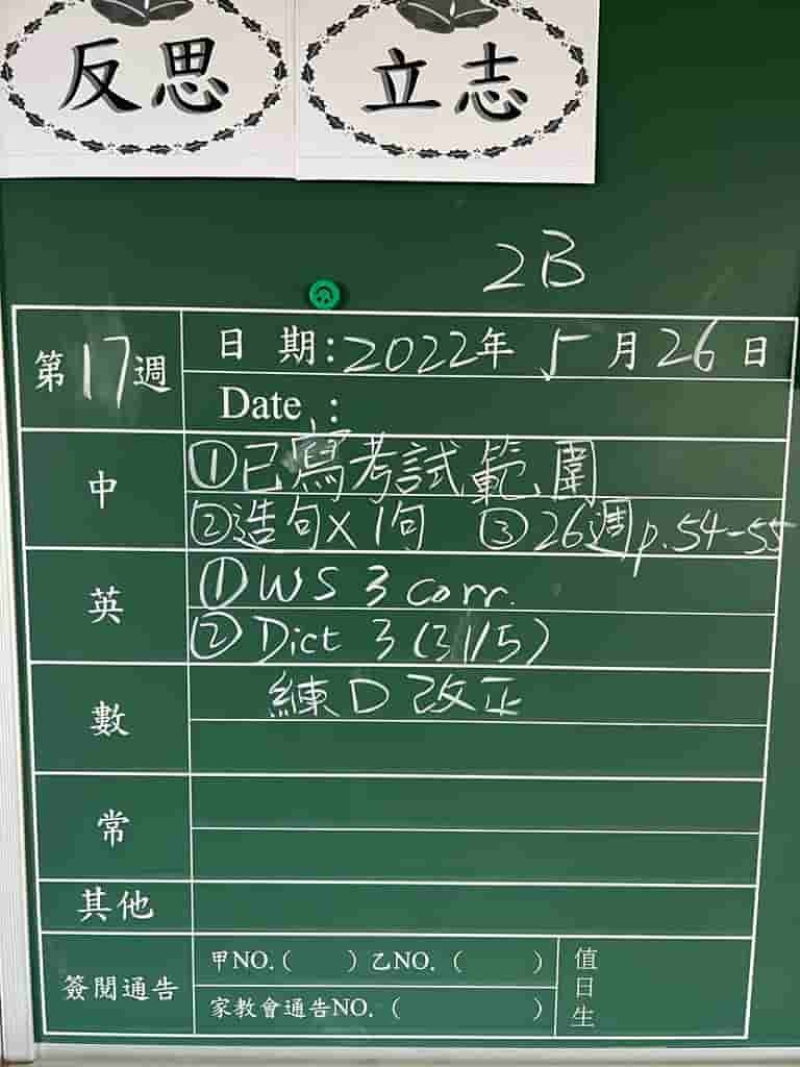 反思 立志
2B
第17週 日 期:2022年 5月26日
Date :
中 ①已寫考試範圍
②造句X1句 ③26週p.54-55
英 ①WS 3 corr.
②Dict 3(31/5)
數 練D改正
常
其他
簽閱通告 甲NO.( )乙NO.( ) 值日生
家教會通告NO.( )